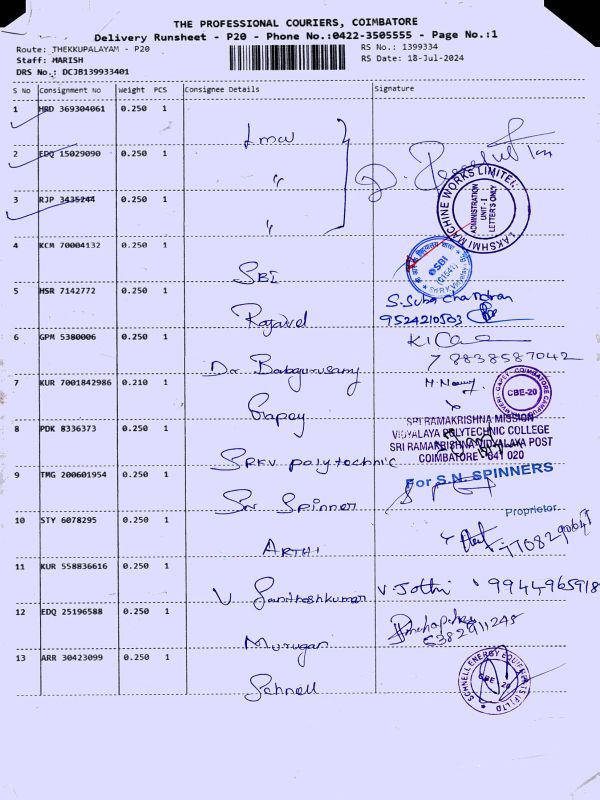 THE PROFESSIONAL COURIERS, COIMBATORE
Delivery Runsheet - P20 - Phone No.:0422-3505555 - Page No.:1
Route: THEKKUPALAYAM - P20 RS No.: 1399334
Staff: MARISH RS Date: 18-Jul-2024
DRS No.: DCJB139933401
S No Consignment No Weight PCS Consignee Details Signature
1 HRD 369304061 0.250 1
LMW
2 EDQ 15029090 0.250 1
"
3 RJP 3435244 0.250 1
"
LAKSHMI MACHINE WORKS LIMITED
ADMINISTRATION
UNIT-I
LETTER'S ONLY
4 KCM 70004132 0.250 1
SBI
SBI
5 HSR 7142772 0.250 1 S. Subachandran
Rajavel 9524210503
6 GPM 5380006 0.250 1
Dr. Babgurusamy 8838587042
7 KUR 7001842986 0.210 1
Gapey CBE-20
8 PDK 8336373 0.250 1 SRI RAMAKRISHNA MISSION
VIDYALAYA POLYTECHNIC COLLEGE
SRI RAMAKRISHNA VIDYALAYA POST
SRKV polytechnic COIMBATORE - 641 020
9 TMG 200601954 0.250 1 For S.N. SPINNERS
SN Spinner
Proprietor
10 STY 6078295 0.250 1
ARTHI
11 KUR 558836616 0.250 1
V. Santhoshkumar V. Jothi 9944965918
12 EDQ 25196588 0.250 1
Murugan 6382911245
13 ARR 30423099 0.250 1
Schnell
SCHNELL ENERGY EQUIPMENTS (P) LTD
CBE 20